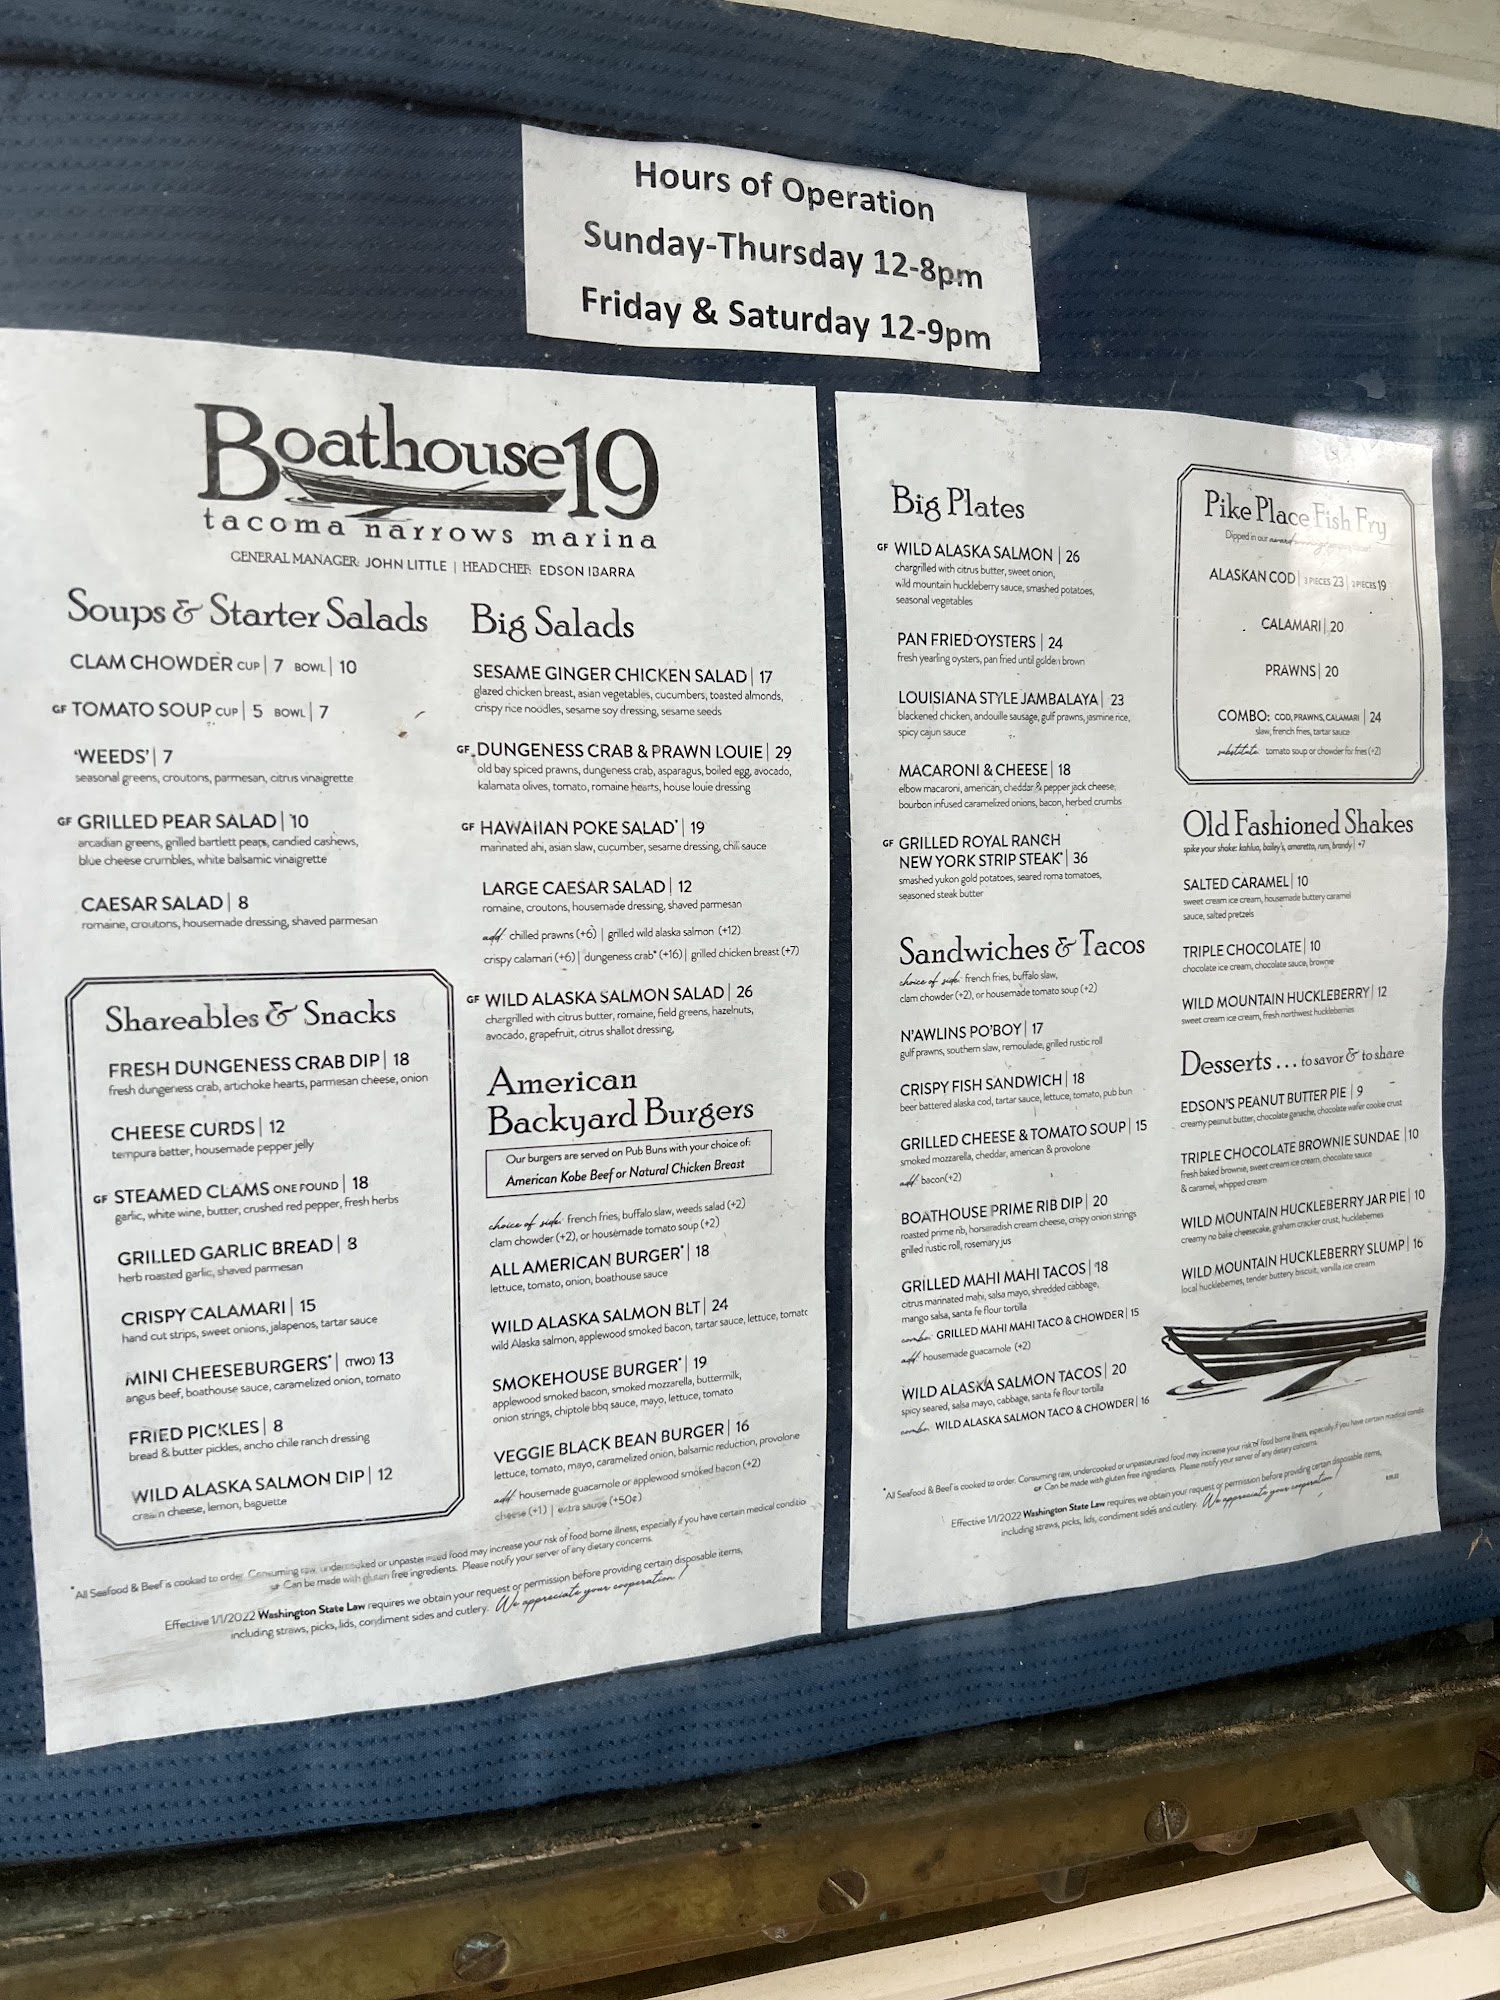 Hours of Operation
Sunday-Thursday 12-8pm
Friday & Saturday 12-9pm
Boathouse19
tacoma narrows marina
GENERAL MANAGER: JOHN LITTLE | HEAD CHEF: EDSON IBARRA
Soups & Starter Salads
CLAM CHOWDER CUP | 7 BOWL | 10
GF TOMATO SOUP CUP | 5 BOWL | 7
'WEEDS' | 7
seasonal greens, croutons, parmesan, citrus vinaigrette
GF GRILLED PEAR SALAD | 10
arcadian greens, grilled bartlett pears, candied cashews,
blue cheese crumbles, white balsamic vinaigrette
CAESAR SALAD | 8
romaine, croutons, housemade dressing, shaved parmesan
Shareables & Snacks
FRESH DUNGENESS CRAB DIP | 18
fresh dungeness crab, artichoke hearts, parmesan cheese, onion
CHEESE CURDS | 12
tempura batter, housemade pepper jelly
GF STEAMED CLAMS ONE POUND | 18
garlic, white wine, butter, crushed red pepper, fresh herbs
GRILLED GARLIC BREAD | 8
herb roasted garlic, shaved parmesan
CRISPY CALAMARI | 15
hand cut strips, sweet onions, jalapenos, tartar sauce
MINI CHEESEBURGERS* | (TWO) 13
angus beef, boathouse sauce, caramelized onion, tomato
FRIED PICKLES | 8
bread & butter pickles, ancho chile ranch dressing
WILD ALASKA SALMON DIP | 12
cream cheese, lemon, baguette
Big Salads
SESAME GINGER CHICKEN SALAD | 17
glazed chicken breast, asian vegetables, cucumbers, toasted almonds,
crispy rice noodles, sesame soy dressing, sesame seeds
GF DUNGENESS CRAB & PRAWN LOUIE | 29
old bay spiced prawns, dungeness crab, asparagus, boiled egg, avocado,
kalamata olives, tomato, romaine hearts, house louie dressing
GF HAWAIIAN POKE SALAD* | 19
marinated ahi, asian slaw, cucumber, sesame dressing, chili sauce
LARGE CAESAR SALAD | 12
romaine, croutons, housemade dressing, shaved parmesan
add: chilled prawns (+6) | grilled wild alaska salmon (+12)
crispy calamari (+6) | dungeness crab* (+16) | grilled chicken breast (+7)
GF WILD ALASKA SALMON SALAD | 26
chargrilled with citrus butter, romaine, field greens, hazelnuts,
avocado, grapefruit, citrus shallot dressing,
American
Backyard Burgers
Our burgers are served on Pub Buns with your choice of:
American Kobe Beef or Natural Chicken Breast
choice of side: french fries, buffalo slaw, weeds salad (+2)
clam chowder (+2), or housemade tomato soup (+2)
ALL AMERICAN BURGER* | 18
lettuce, tomato, onion, boathouse sauce
WILD ALASKA SALMON BLT | 24
wild Alaska salmon, applewood smoked bacon, tartar sauce, lettuce, tomato
SMOKEHOUSE BURGER* | 19
applewood smoked bacon, smoked mozzarella, buttermilk,
onion strings, chiptole bbq sauce, mayo, lettuce, tomato
VEGGIE BLACK BEAN BURGER | 16
lettuce, tomato, mayo, caramelized onion, balsamic reduction, provolone
add: housemade guacamole or applewood smoked bacon (+2)
cheese (+1) | extra sauce (+50¢)
*All Seafood & Beef is cooked to order. Consuming raw, undercooked or unpasteurized food may increase your risk of food borne illness, especially if you have certain medical conditio
GF Can be made with gluten free ingredients. Please notify your server of any dietary concerns.
Effective 1/1/2022 Washington State Law requires we obtain your request or permission before providing certain disposable items,
including straws, picks, lids, condiment sides and cutlery. We appreciate your cooperation!
Big Plates
GF WILD ALASKA SALMON | 26
chargrilled with citrus butter, sweet onion,
wild mountain huckleberry sauce, smashed potatoes,
seasonal vegetables
PAN FRIED OYSTERS | 24
fresh yearling oysters, pan fried until golden brown
LOUISIANA STYLE JAMBALAYA | 23
blackened chicken, andouille sausage, gulf prawns, jasmine rice,
spicy cajun sauce
MACARONI & CHEESE | 18
elbow macaroni, american, cheddar & pepper jack cheese,
bourbon infused caramelized onions, bacon, herbed crumbs
GF GRILLED ROYAL RANCH
NEW YORK STRIP STEAK* | 36
smashed yukon gold potatoes, seared roma tomatoes,
seasoned steak butter
Sandwiches & Tacos
choice of side: french fries, buffalo slaw,
clam chowder (+2), or housemade tomato soup (+2)
N'AWLINS PO'BOY | 17
gulf prawns, southern slaw, remoulade, grilled rustic roll
CRISPY FISH SANDWICH | 18
beer battered alaska cod, tartar sauce, lettuce, tomato, pub bun
GRILLED CHEESE & TOMATO SOUP | 15
smoked mozzarella, cheddar, american & provolone
add: bacon(+2)
BOATHOUSE PRIME RIB DIP | 20
roasted prime rib, horseradish cream cheese, crispy onion strings
grilled rustic roll, rosemary jus
GRILLED MAHI MAHI TACOS | 18
citrus marinated mahi, salsa mayo, shredded cabbage,
mango salsa, santa fe flour tortilla
combo: GRILLED MAHI MAHI TACO & CHOWDER | 15
add: housemade guacamole (+2)
WILD ALASKA SALMON TACOS | 20
spicy seared, salsa mayo, cabbage, santa fe flour tortilla
combo: WILD ALASKA SALMON TACO & CHOWDER | 16
Pike Place Fish Fry
Dipped in our award winning
ALASKAN COD | 3 PIECES 23 | 2 PIECES 19
CALAMARI | 20
PRAWNS | 20
COMBO: COD, PRAWNS, CALAMARI | 24
slaw, french fries, tartar sauce
substitute: tomato soup or chowder for fries (+2)
Old Fashioned Shakes
spike your shake: kahlua, bailey's, amaretto, rum, brandy | +7
SALTED CARAMEL | 10
sweet cream ice cream, housemade buttery caramel
sauce, salted pretzels
TRIPLE CHOCOLATE | 10
chocolate ice cream, chocolate sauce, brownie
WILD MOUNTAIN HUCKLEBERRY | 12
sweet cream ice cream, fresh northwest huckleberries
Desserts . . . to savor & to share
EDSON'S PEANUT BUTTER PIE | 9
creamy peanut butter, chocolate ganache, chocolate wafer cookie crust
TRIPLE CHOCOLATE BROWNIE SUNDAE | 10
fresh baked brownie, sweet cream ice cream, chocolate sauce
& caramel, whipped cream
WILD MOUNTAIN HUCKLEBERRY JAR PIE | 10
creamy no bake cheesecake, graham cracker crust, huckleberries
WILD MOUNTAIN HUCKLEBERRY SLUMP | 16
local huckleberries, tender buttery biscuit, vanilla ice cream
*All Seafood & Beef is cooked to order. Consuming raw, undercooked or unpasteurized food may increase your risk of food borne illness, especially if you have certain medical condit
GF Can be made with gluten free ingredients. Please notify your server of any dietary concerns.
Effective 1/1/2022 Washington State Law requires we obtain your request or permission before providing certain disposable items,
including straws, picks, lids, condiment sides and cutlery. We appreciate your cooperation!